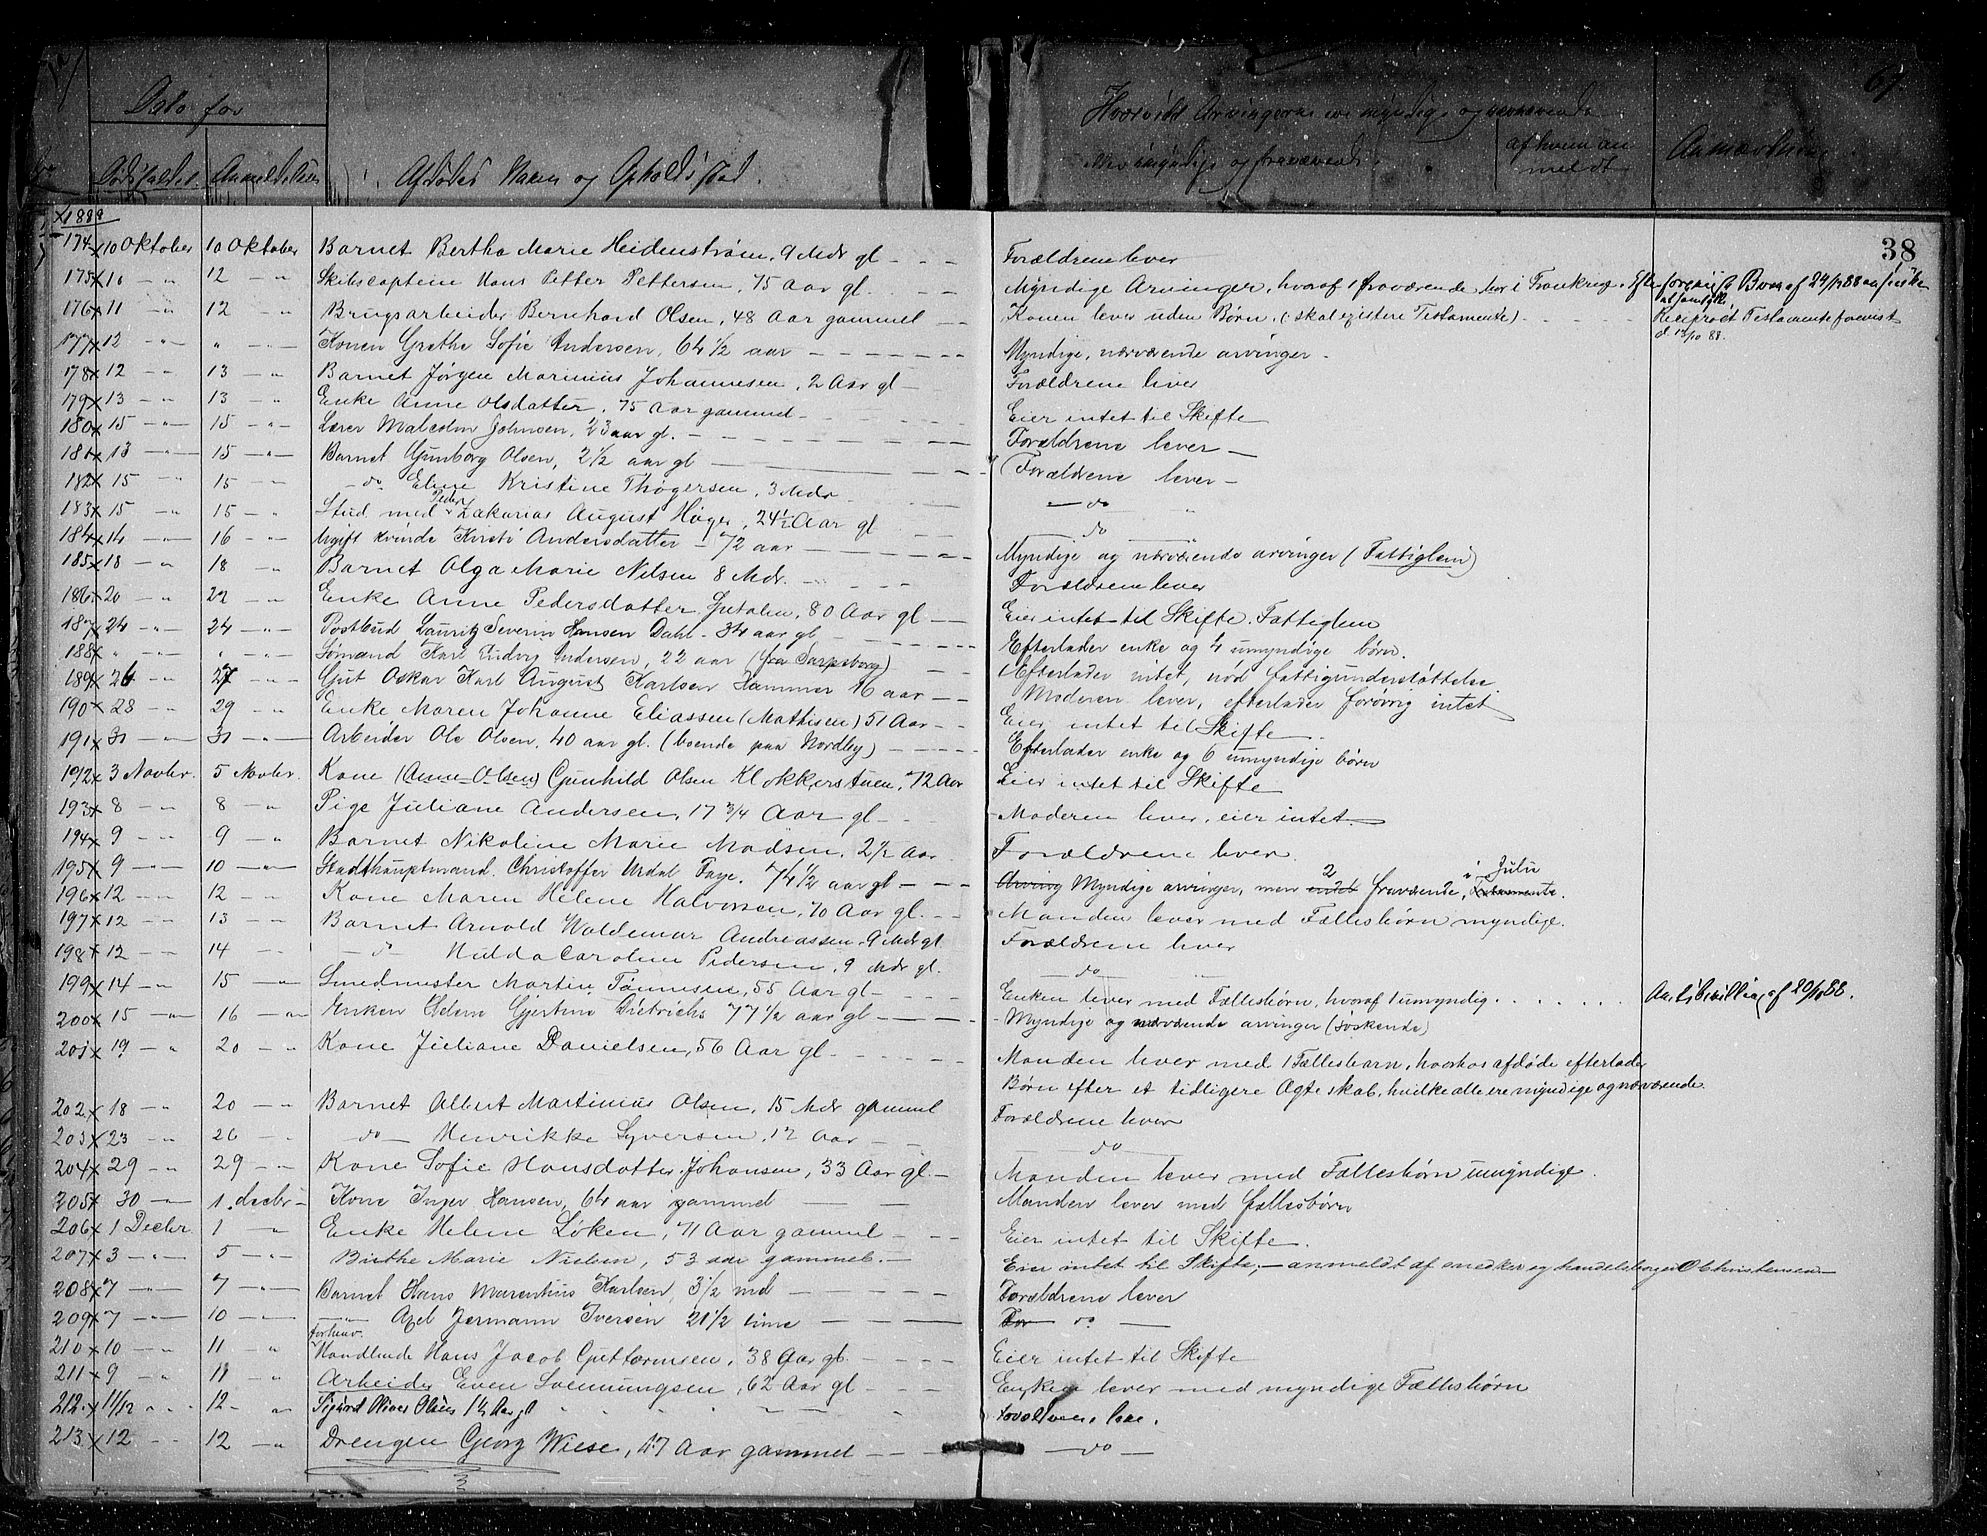 Dato for
Dødsfaldet. Anmeldelsen
Afdødes Navn og Opholdssted.
Hvorvidt Arvingerne ere myndige og nærværende
eller umyndige og fraværende.
af hvem an
meldt
Anmærkning
67
38
1888
174 x 10 Oktober 10 Oktober Barnet Bertha Marie Heidenstrøm, 9 Mdr gl - - - Forældrene lever
175 x 10 - " 12 - " Skibscaptein Hans Petter Pettersen, 75 Aar gl. Myndige Arvinger, hvoraf 1 fraværende, bor i Frankrig.
176 x 11 " 12 - " Brugsarbeider Bernhard Olsen, 48 Aar gammel - - Konen lever uden Børn, (skal existere Testamente) - - - Reciprokt Testamente forevist
d. 12/10 88.
177 x 12 - " " - " Konen Grethe Sofie Andersen, 64 1/2 aar - - - - - Myndige, nærværende arvinger -
178 x 12 - " 13 - " Barnet Jørgen Marinius Johannesen, 2 Aar gl - Forældrene lever
179 x 13 - " 13 - " Enke Anne Olsdatter, 75 Aar gammel - Eier intet til Skifte
180 x 15 - " 15 - " Lærer Malcolm Johnsen, 23 aar gl. - - - Forældrene lever -
181 x 13 - " 15 - " Barnet Gunborg Olsen, 2 1/2 aar gl - - - Forældrene lever -
182 x 15 " 15 - " - do Eline Kristine Thøgersen, 3 Mdr - do "
183 x 15 - " 15 - " Stud med Peder Zakarias August Høyer, 24 1/2 Aar gl do
184 x 14 - " 16 - " Ugift kvinde Kirsti Andersdatter - 72 aar - - - Myndige og nærværende arvinger (Fattiglem)
185 x 18 - " 18 - " Barnet Olga Marie Nilsen 8 Mdr. - - - Forældrene lever
186 x 20 - " 22 - " Enke Anne Pedersdatter Grtalen, 80 Aar gl - - Eier intet til Skifte. Fattiglem
187 x 24 - " 24 - " Postbud Lauritz Severin Hansen Dahl - 34 aar gl - Efterlader enke og 4 umyndige børn.
188 x " - " " - " Sømand Karl Ludvig Andersen, 22 aar (fra Sarpsborg) - Efterlader intet, nød fattigunderstøttelse.
189 x 26 - " 27 - " Gut Oskar Karl August Karlsen Hammer 16 aar - - Moderen lever, efterlader forøvrig intet
190 x 28 - " 29 - " Enke Maren Johanne Eliassen (Mathisen) 51 Aar - - Eier intet til Skifte
191 x 31 - " 31 - " Arbeider Ole Olsen, 40 aar gl. (boende paa Nordby) - - - - Efterlader enke og 6 umyndige børn
192 x 3 Novbr. 5 Novbr. Kone (Anne Olsen) Gunhild Olsen Klokkerstuen, 72 Aar Eier intet til Skifte
193 x 8 - " 8 - " Pige Juliane Andersen, 17 3/4 Aar gl - - Moderen lever, eier intet -
194 x 9 - " 9 - " Barnet Nikoline Marie Madsen, 2 1/2 Aar Forældrene lever.
195 x 9 - " 10 - " Stadthauptmand Christoffer Urdal Faye, 74 1/2 aar gl - - - Arving Myndige arvinger, men endel 2 fraværende, i Julie Testamente.
196 x 12 - " 12 - " Kone Maren Helene Halvorsen, 70 Aar gl. - - Manden lever med Fællesbørn myndige.
197 x 12 - " 13 - " Barnet Arnold Waldemar Andreassen, 9 Mdr gl Forældrene lever
198 x 12 - " 14 - " - do - Hulda Caroline Pedersen, 9 Mdr gl. - do "
199 x 14 - " 15 - " Smedmester Martin Tønnesen, 55 Aar gl - - - Enken lever med Fællesbørn, hvoraf 1 umyndig. . . . . Amtsbevilling af 20/11 88.
200 x 15 - " 16 - " Enken Helene Gjertine Dietrichs 77 1/2 aar gl - - - - Myndige og nærværende arvinger (søskende)
201 x 19 - " 20 - " Kone Juliane Danielsen, 56 Aar gl. - - - - Manden lever med 1 Fællesbarn, hvorhos afdøde efterlader
Børn efter et tidligere Ægteskab, hvilke alle ere myndige og nærværende.
202 x 18 - " 20 - " Barnet Albert Martinius Olsen, 15 Mdr gammel Forældrene lever
203 x 23 - " 26 - " - do - Henrikke Syversen, 12 Aar - - do
204 x 29 - " 29 - " Kone Sofie Hansdatter Johansen, 33 Aar gl. - Manden lever med Fællesbørn umyndige.
205 x 30 - " 1. decbr - Kone Inger Hansen, 64 aar gammel - - Manden lever med fællesbørn
206 x 1 Decbr. 1 " Enke Helene Løken, 71 Aar gammel - - - Eier intet til Skifte.
207 x 3 - " 5 - " Birthe Marie Nielsen, 53 aar gammel. - Eier intet til Skifte, - anmeldt af snedker og handelsborger O Christensen -
208 x 7 - " 7 - " Barnet Hans Marenthius Karlsen, 3 1/2 md - - - Forældrene lever
209 x 7 - " 10 - " - " - Axel Jermann Iversen 21 1/2 time - - - For do -
210 x 10 - " 11 - " forhenv. Handlende Hans Jacob Guttormsen, 38 Aar gl. - - - Eier intet til Skifte
211 x 9 - " 11 - " Arbeider Even Svennungsen, 62 Aar gl - - - Enken lever med myndige Fællesbørn
212 x 11/12 " - " 12 - " Sigurd Oliver Olsen 1 1/2 Aar gl " - - - Forældrene leve.
213 x 12 - - 12 - " Drengen Georg Wiese, 17 Aar gammel - - - - do -